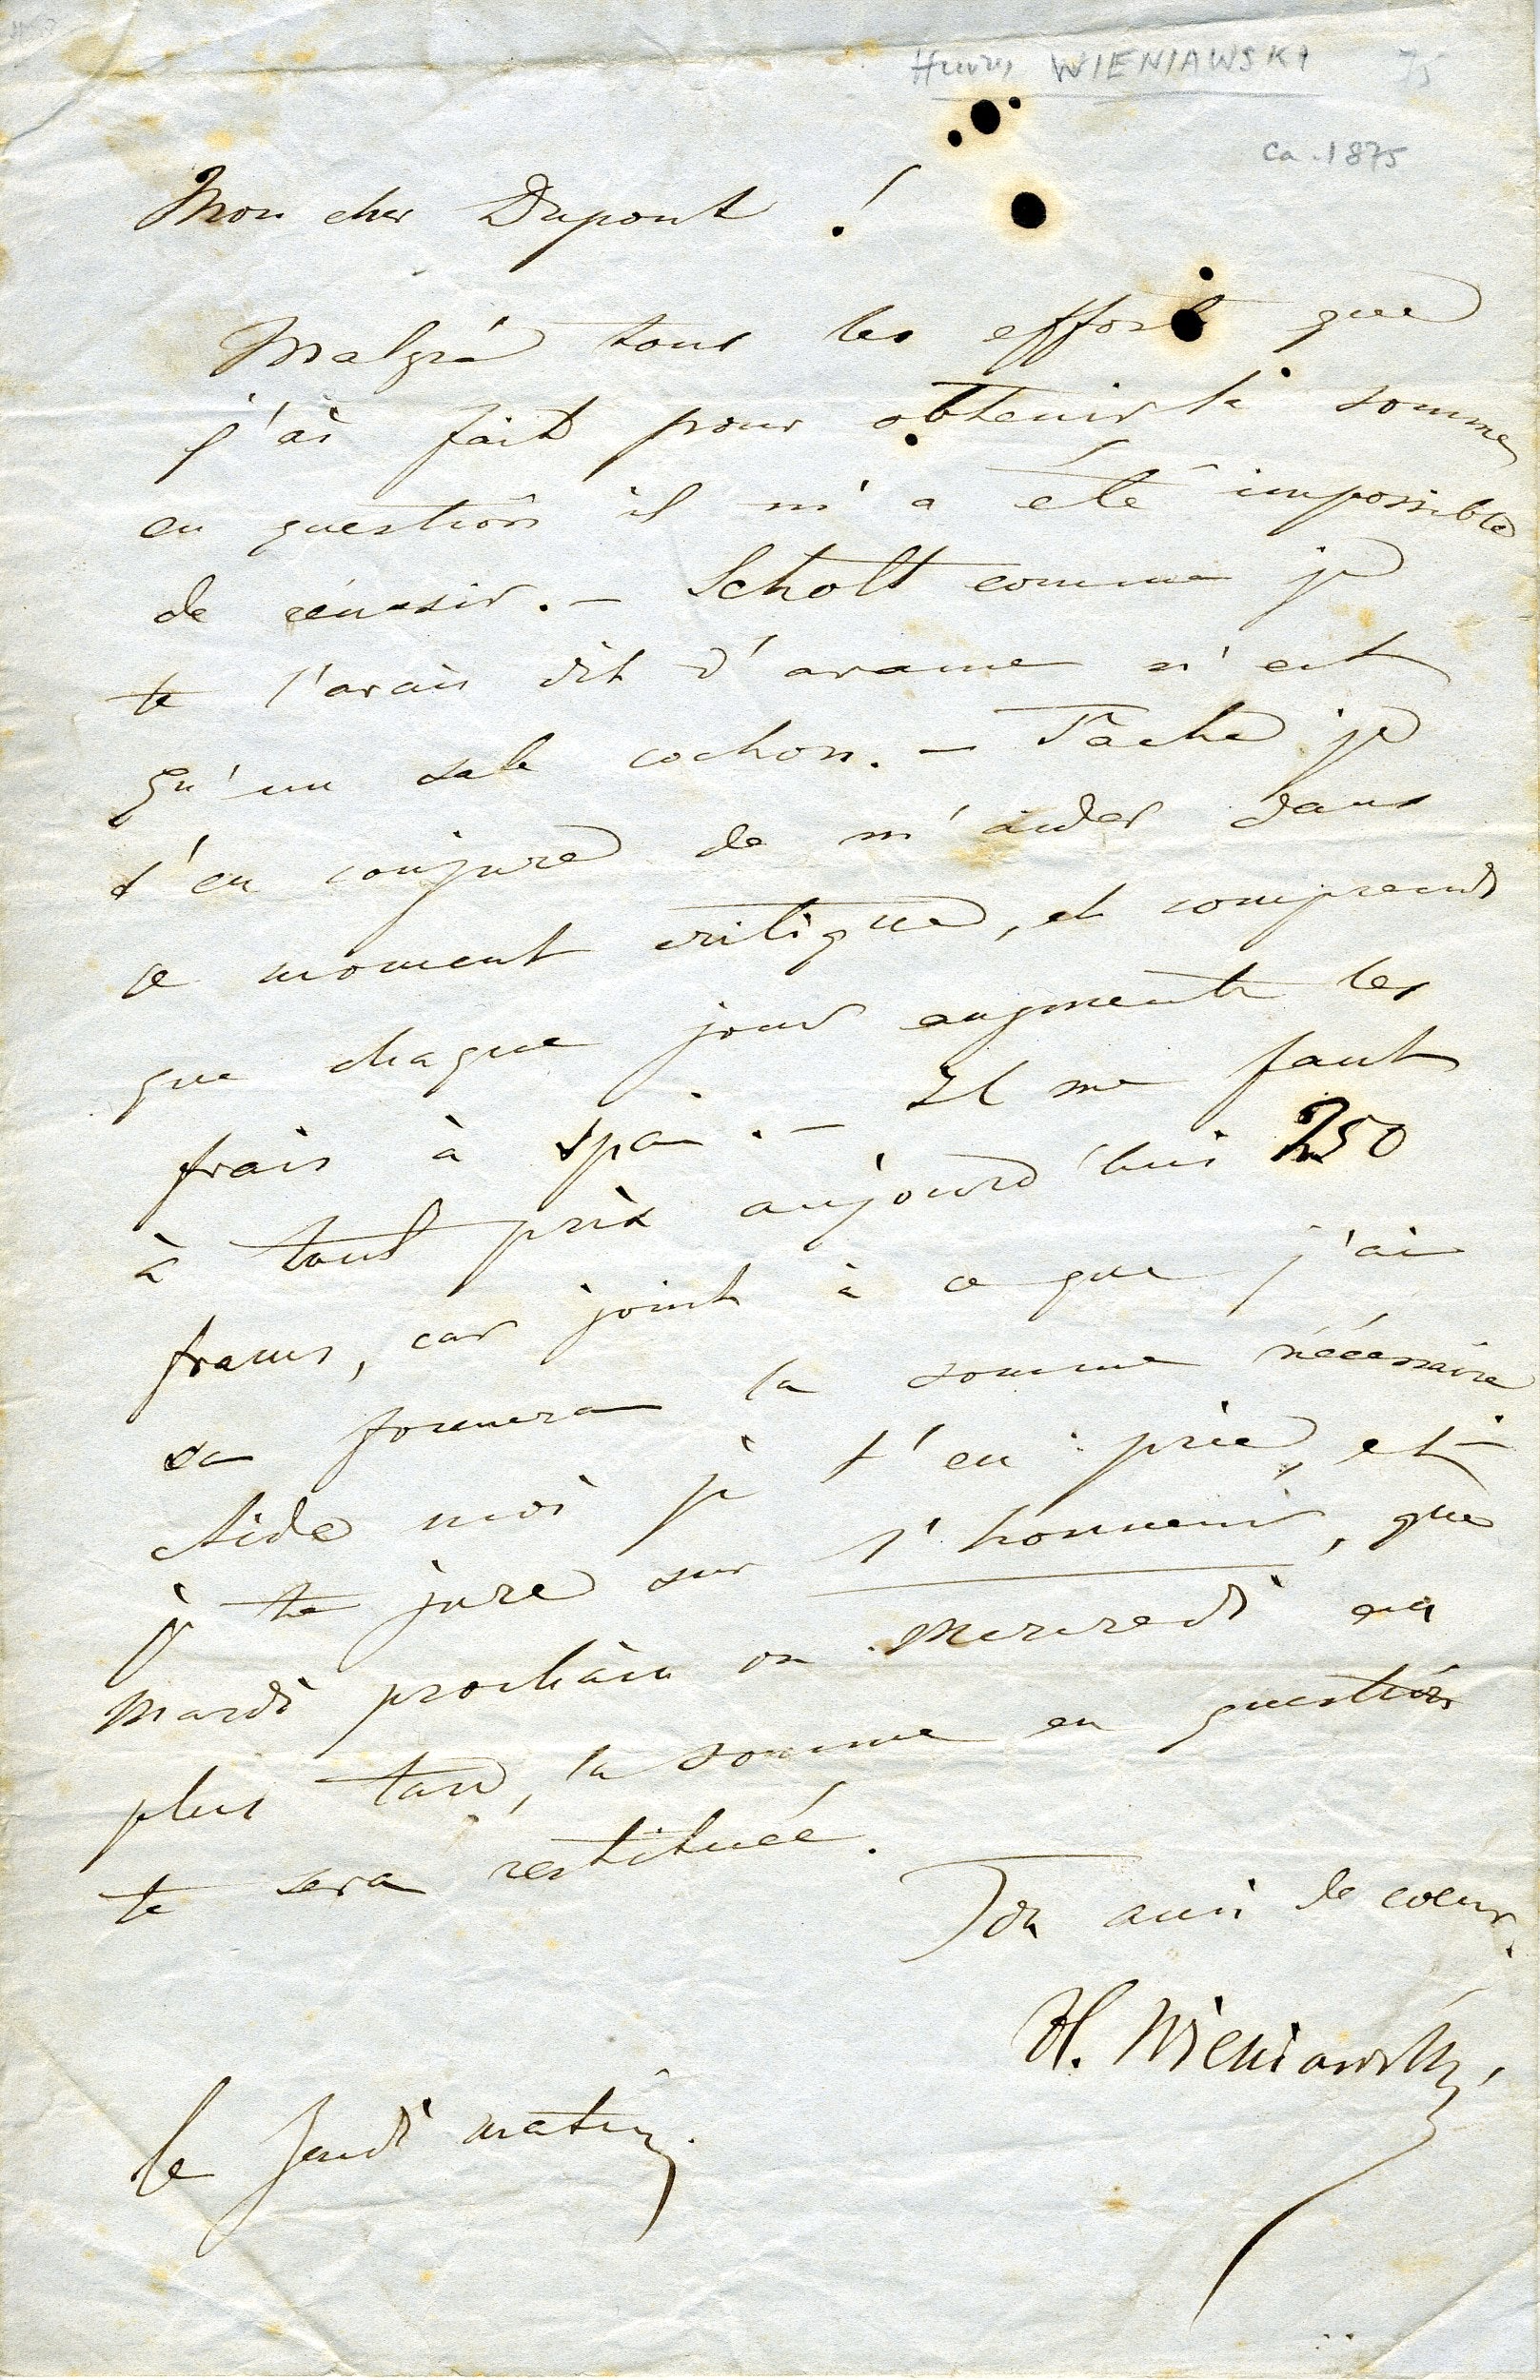 Henri WIENIAWSKI 75
ca. 1875
Mon cher Dupont !
Malgré tous les effort que
j'ai fait pour obtenir la somme
en question il m'a été impossible
de réussir. – Schott comme je
te l'avais dit d'avance n'est
qu'un sale cochon. – Tache je
t'en conjure de m'aider dans
ce moment critique, et comprends
que chaque jour augmente les
frais à Spa. – Il me faut
à tout prix aujourd'hui 250
francs, car joint à ce que j'ai
sa formera la somme nécéssaire
Aide moi je t'en prie, et
je te jure sur l'honneur, que
Mardi prochain ou Mercredi au
plus tard, la somme en question
te sera restituée.
Ton ami de coeur.
H. Wieniawski
le Jeudi matin.